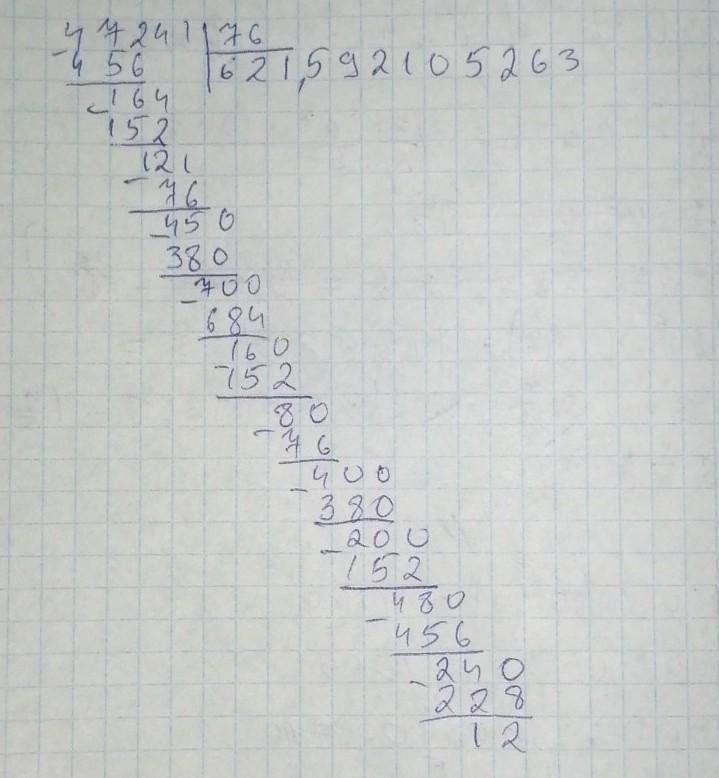 47241 76
- 456 621,592105263
- 164
152
121
- 76
- 450
380
- 700
684
160
- 152
80
- 76
400
- 380
200
- 152
480
- 456
240
- 228
12